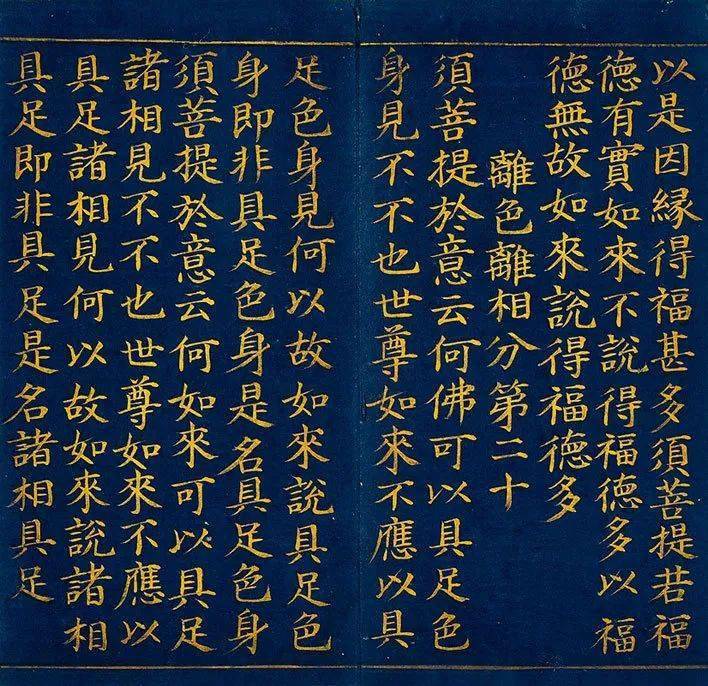 以是因緣得福甚多須菩提若福
德有實如來不說得福德多以福
德無故如來說得福德多
離色離相分第二十
須菩提於意云何佛可以具足色
身見不不也世尊如來不應以具
足色身見何以故如來說具足色
身即非具足色身是名具足色身
須菩提於意云何如來可以具足
諸相見不不也世尊如來不應以
具足諸相見何以故如來說諸相
具足即非具足是名諸相具足